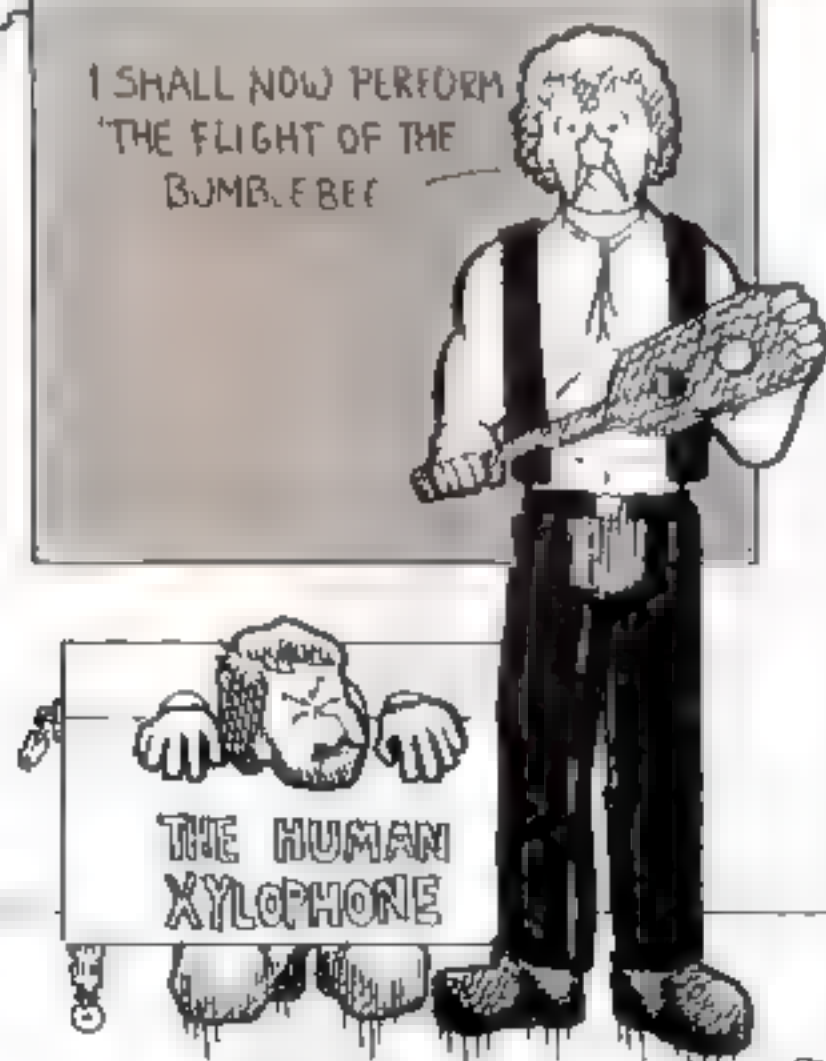 I SHALL NOW PERFORM
'THE FLIGHT OF THE
BUMBLEBEE
THE HUMAN
XYLOPHONE